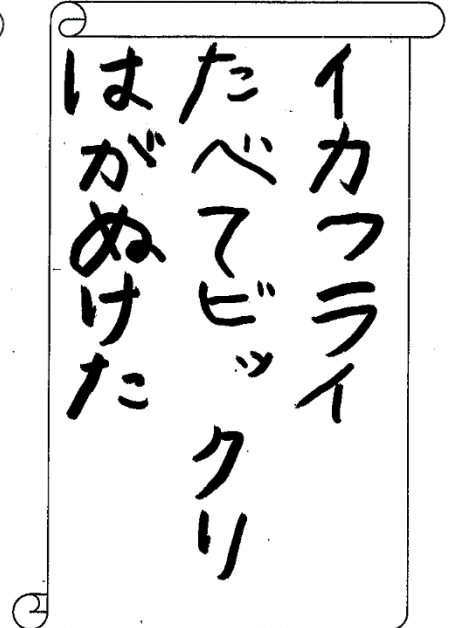 イカフライ
たべてビックリ
はがぬけた